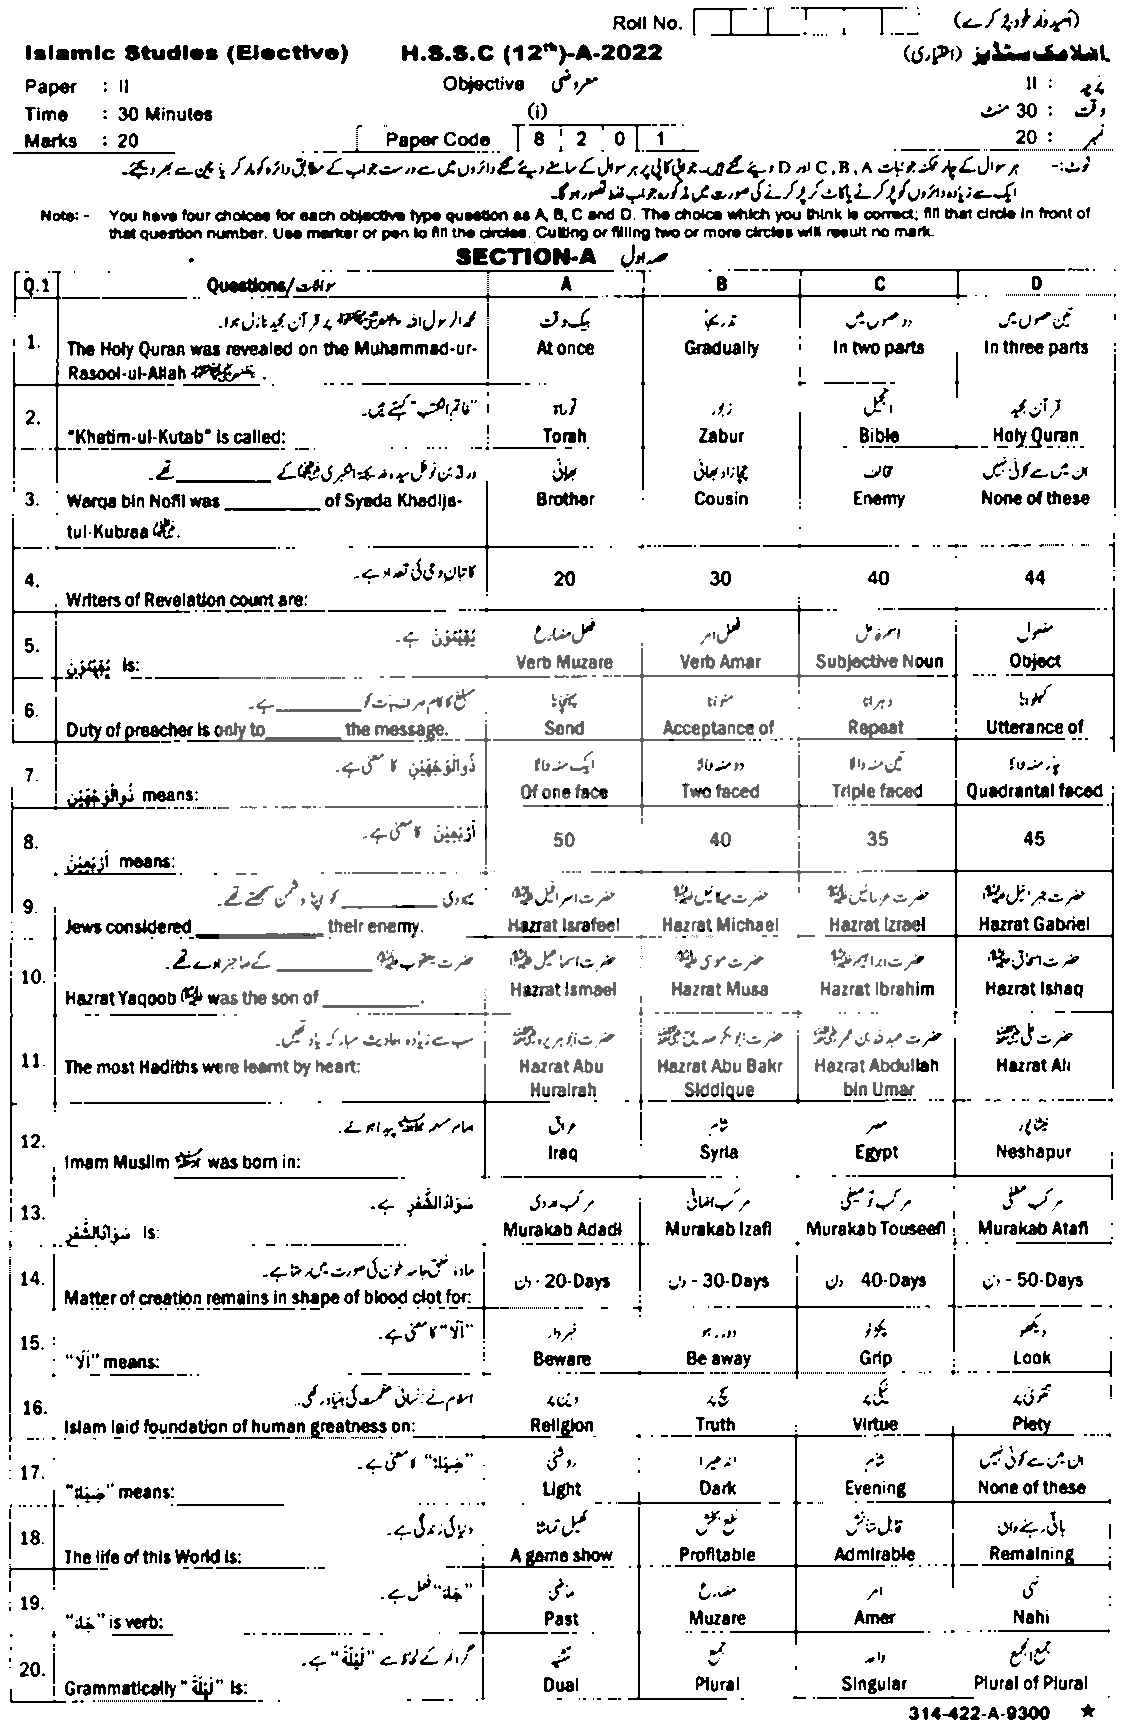 Roll No. (امیدوار خود پُر کرے)
Islamic Studies (Elective) H.S.S.C (12th)-A-2022 اسلامک سٹڈیز (اختیاری)
Paper : II Objective معروضی پرچہ : II
Time : 30 Minutes (i) وقت : 30 منٹ
Marks : 20 Paper Code 8 2 0 1 نمبر : 20
نوٹ:- ہر سوال کے چار ممکنہ جوابات C, B, A اور D دیئے گئے ہیں۔ جوابی کاپی پر ہر سوال کے سامنے دیئے گئے دائروں میں سے درست جواب کے مطابق دائرہ کو مارکر یا پین سے بھر دیجئے۔
ایک سے زیادہ دائروں کو پُر کرنے یا کاٹ کر پُر کرنے کی صورت میں مذکورہ جواب غلط تصور ہوگا۔
Note: - You have four choices for each objective type question as A, B, C and D. The choice which you think is correct; fill that circle in front of
that question number. Use marker or pen to fill the circles. Cutting or filling two or more circles will result no mark.
SECTION-A حصہ اول
Q.1 Questions/سوالات A B C D
محمد الرسول اللہ پر قرآن مجید نازل ہوا۔ یک وقت تدریجاً دو حصوں میں تین حصوں میں
1. The Holy Quran was revealed on the Muhammad-ur- At once Gradually In two parts In three parts
Rasool-ul-Allah .
"خاتم الکتب" کہتے ہیں۔ توراۃ زبور انجیل قرآن مجید
2. "Khatim-ul-Kutab" is called: Torah Zabur Bible Holy Quran
ورقہ بن نوفل سیدہ خدیجۃ الکبریٰ کے ________ تھے۔ بھائی چچا زاد بھائی مخالف ان میں سے کوئی نہیں
3. Warqa bin Nofil was ________ of Syeda Khadija- Brother Cousin Enemy None of these
tul-Kubraa .
کاتبان وحی کی تعداد ہے۔
4. Writers of Revelation count are: 20 30 40 44
یُقِیْمُوْنَ ہے۔ فعل مضارع فعل امر اسم فاعل مفعول
5. یُقِیْمُوْنَ is: Verb Muzare Verb Amar Subjective Noun Object
مبلغ کا کام صرف بات کو ________ ہے۔ پہنچانا منوانا دہرانا کہلوانا
6. Duty of preacher is only to ________ the message. Send Acceptance of Repeat Utterance of
ذُوالْوَجْهَیْنِ کا معنی ہے۔ ایک منہ والا دو منہ والا تین منہ والا چار منہ والا
7. ذُوالْوَجْهَیْنِ means: Of one face Two faced Triple faced Quadrantal faced
اَرْبَعِیْنَ کا معنی ہے۔
8. اَرْبَعِیْنَ means: 50 40 35 45
یہودی ________ کو اپنا دشمن سمجھتے تھے۔ حضرت اسرافیل حضرت میکائیل حضرت عزرائیل حضرت جبرائیل
9. Jews considered ________ their enemy. Hazrat Israfeel Hazrat Michael Hazrat Izrael Hazrat Gabriel
حضرت یعقوب ________ کے صاحبزادے تھے۔ حضرت اسماعیل حضرت موسیٰ حضرت ابراہیم حضرت اسحاق
10. Hazrat Yaqoob was the son of ________. Hazrat Ismael Hazrat Musa Hazrat Ibrahim Hazrat Ishaq
سب سے زیادہ احادیث مبارکہ یاد تھیں۔ حضرت ابوہریرہ حضرت ابوبکر صدیق حضرت عبداللہ بن عمر حضرت علی
11. The most Hadiths were learnt by heart: Hazrat Abu Hazrat Abu Bakr Hazrat Abdullah Hazrat Ali
Hurairah Siddique bin Umar
امام مسلم پیدا ہوئے۔ عراق شام مصر نیشاپور
12. Imam Muslim was born in: Iraq Syria Egypt Neshapur
سَوَادُالشَّعْرِ ہے۔ مرکب عددی مرکب اضافی مرکب توصیفی مرکب عطفی
13. سَوَادُالشَّعْرِ is: Murakab Adadi Murakab Izafi Murakab Touseefi Murakab Atafi
مادہ تخلیق جامد خون کی صورت میں رہتا ہے۔
14. Matter of creation remains in shape of blood clot for: دن - 20-Days دن - 30-Days دن 40-Days دن - 50-Days
"اَلَا" کا معنی ہے۔ خبردار دور ہو پکڑو دیکھو
15. "اَلَا" means: Beware Be away Grip Look
اسلام نے انسانی عظمت کی بنیاد رکھی۔ دین پر سچ پر نیکی پر تقویٰ پر
16. Islam laid foundation of human greatness on: Religion Truth Virtue Piety
"ضِیَاءً" کا معنی ہے۔ روشنی اندھیرا شام ان میں سے کوئی نہیں
17. "ضِیَاءً" means: Light Dark Evening None of these
دنیا کی زندگی ہے۔ کھیل تماشا نفع بخش قابل ستائش باقی رہنے والی
18. The life of this World is: A game show Profitable Admirable Remaining
"جَاءَ" فعل ہے۔ ماضی مضارع امر نہی
19. "جَاءَ" is verb: Past Muzare Amer Nahi
گرائمر کے لحاظ سے "لَیْلَۃٌ" ہے۔ تثنیہ جمع واحد جمع الجمع
20. Grammatically "لَیْلَۃٌ" is: Dual Plural Singular Plural of Plural
314-422-A-9300 ★